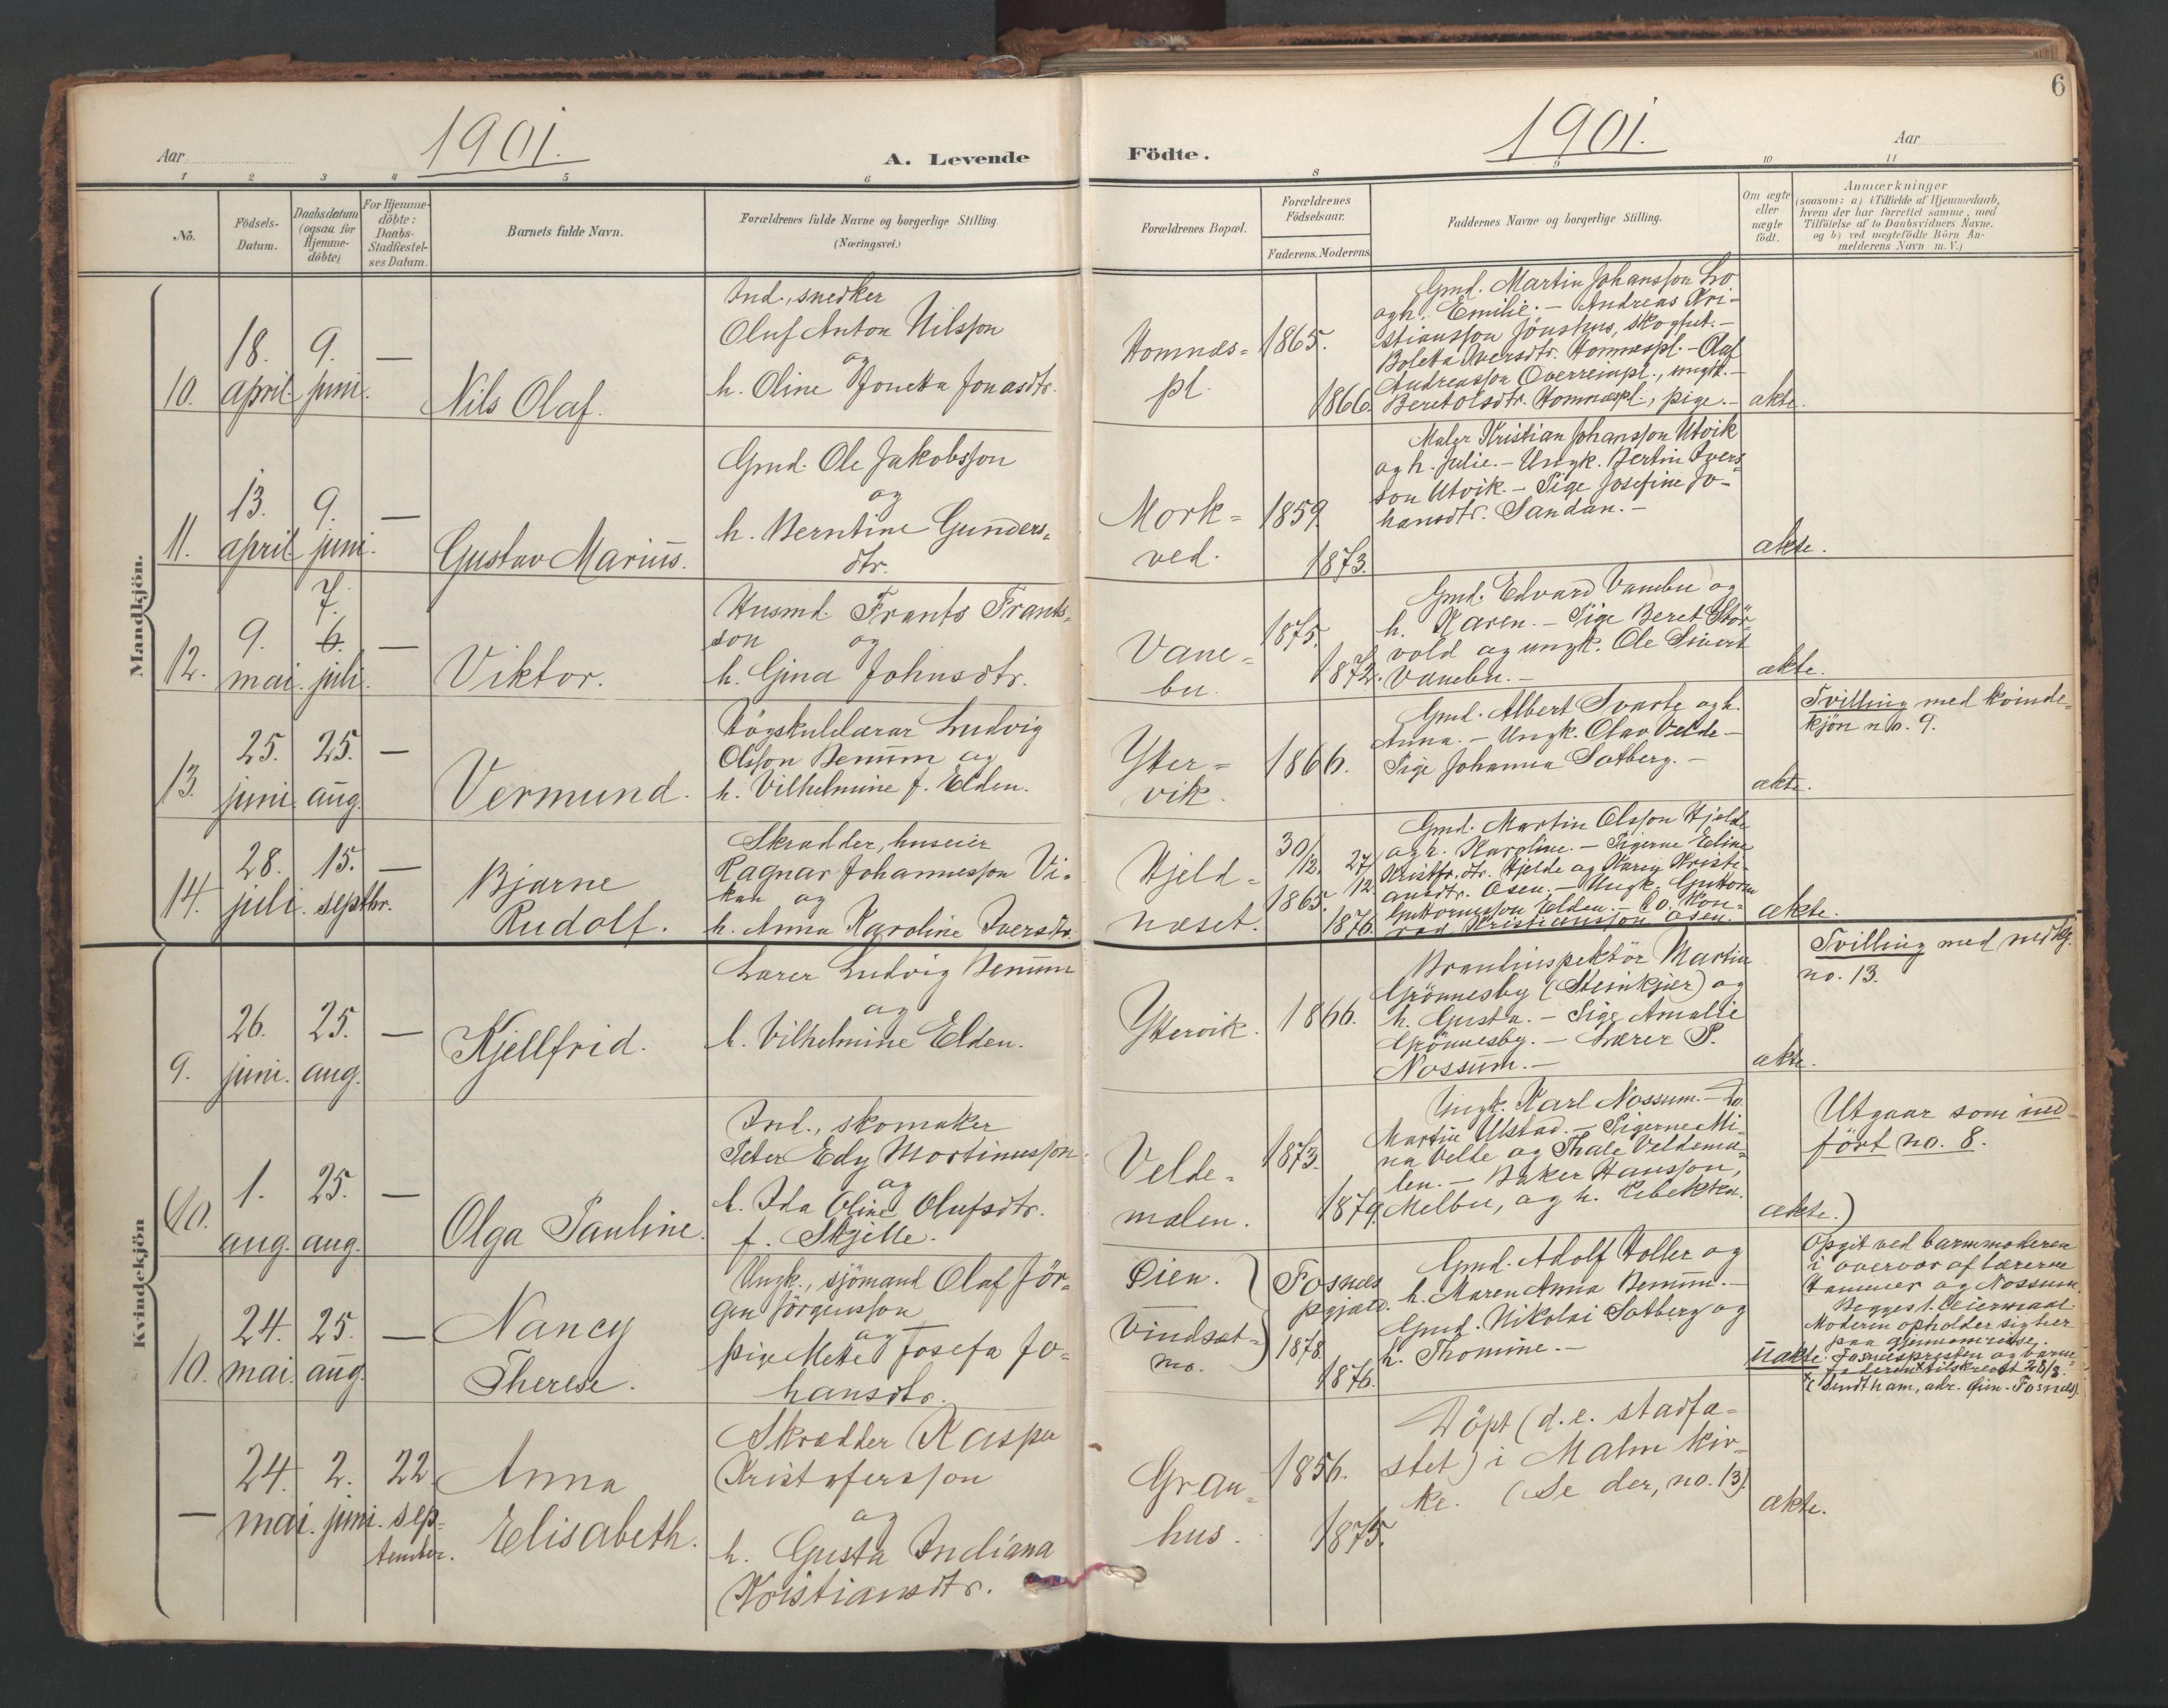 6
Aar
1901.
A. Levende
Födte.
1901.
Aar
1
2
3
4
5
6
8
9
10
11
No.
Födsels-
Datum.
Daabsdatum
(ogsaa for
Hjemme-
döbte)
For Hjemme-
döbte:
Daabs-
Stadfæstel-
ses Datum.
Barnets fulde Navn.
Forældrenes fulde Navne og borgerlige Stilling.
(Næringsvei.)
Forældrenes Bopæl.
Forældrenes
Födselsaar.
Faderens.
Moderens
Faddernes Navne og borgerlige Stilling.
Om ægte
eller
uægte
födt.
Anmærkninger
(saasom: a) i Tilfælde af Hjemmedaab,
hvem der har forrettet samme, med
Tilföielse af to Daabsvidners Navne.
og b) ved uægtefödte Börn An-
melderens Navn m. V.)
Mandkjön.
10.
18.
april
9.
juni.
—
Nils Olaf.
Ind., snedker
Oluf Anton Nilsson
og
h. Oline Jonetta Jonasdtr.
Homnes-
pl.
1865.
1866.
Gmd. Martin Johansson
og h. Emilie. — Andreas Kri-
stiansson Jönshus,
Boletta Iversdtr. Homnespl. — Olaf
Andreasson Overreinpl., ungk. —
Beret Olsdtr. Homnespl., pige. —
ækte.
11.
13.
april
9.
juni.
—
Gustav Marius.
Gmd. Ole Jakobsson
og
h. Berntine Gunders-
dtr.
Mork-
ved.
1859.
1873.
Maler Kristian Johansson Utvik
og h. Julie. — Ungk. Bertin Ivers-
son Utvik. — Pige Josefine Jo-
hansdtr. Sandan. —
ækte.
12.
9.
mai.
7.
6.
juli.
—
Viktor.
Husmd. Frants Frants-
son og
h. Gina Johnsdtr.
Vane-
bu.
1875.
1872.
Gmd. Edvard Vanebu og
h. Karen. — Pige Beret Stör-
vold og ungk. Ole Sivert
Vanebu. —
ækte.
13.
25.
juni.
25.
aug.
—
Vermund.
Högskulelærar Ludvig
Olsson Benum og
h. Vilhelmine f. Elden.
Yter-
vik.
1866.
Gmd. Albert Svarte og h.
Anna. — Ungk. Olav Velde —
Pige Johanna Satberg. —
ækte.
Tvilling med kvinde-
kjön no. 9.
14.
28.
juli.
15.
septbr.
—
Bjarne
Rudolf.
Skrædder, huseier
Ragnar Johannesson Vi-
kan og
h. Anna Karoline Iversdtr.
Hjeld-
næset.
30/12.
1865.
27/12
1876.
Gmd. Martin Olsson Hjelde
og h. Karoline. — Pigerne Eline
Kristfr.dtr. Hjelde og Karen Kristi-
ansdtr. Osen. — Ungk. Guttorm
Guttormsson Elden. — Do. Kon-
rad Kristiansson Osen.
ækte.
Kvindekjön
9.
26.
juni.
25.
aug.
—
Kjellfrid.
Lærer Ludvig Benum
og
h. Vilhelmine Elden.
Ytervik.
1866.
Brandinspektör Martin
Grönnesby (Steinkjær) og
h. Gusta. — Pige Amalie
Grönnesby. — Lærer P.
Nossum. —
ækte.
Tvilling med
no. 13.
(10.
1.
aug.
25.
aug.
—
Olga Pauline.
Ind., skomaker
Peter Edy Mortinusson
og
h. Ida Oline Olufsdtr.
f. Skjelle.
Velde-
malen.
1873.
1879.
Ungk. Karl Nossum. — Do.
Martin Ulstad. — Pigerne Mi-
na Velle og Thale Veldema-
len. — Baker Hansson,
Melbu, og h. Rebekka.
ækte.)
Utgaar som ind-
fört no. 8.
10.
24.
mai.
25.
aug.
—
Nancy
Therese.
Ungk., sjömand Olaf Jör-
gen Jörgensson
og
pige Mette Josefa Jo-
hansdtr.
Öien.
Vindset-
mo.
Fosnæs
pgjæld.
1878.
1876.
Gmd. Adolf Holler og
h. Maren Anna Benum. —
Gmd. Nikolai Satberg og
h. Thomine. —
uækte.
Opgit ved barnemoderen
i overvær af lærerne
Hammer og Nossum.
Begges 1. leiermaal.
Moderen opholder sig her
paa gjennemreise.
Fosnespresten og barne-
faderen tilskrevet 28/8.
(Sendt ham, adr. Öien - Fosnes)
—
24.
mai.
2.
juni.
22.
sep-
tember.
Anna
Elisabeth.
Skrædder Kasper
Kristofersson
og
h. Gusta Indiana
Kristiansdtr.
Gran-
hus.
1856.
1875.
Döpt (d.e. stadfæ-
stet) i Malm kir-
ke. (Se der, no. 13).
ækte.